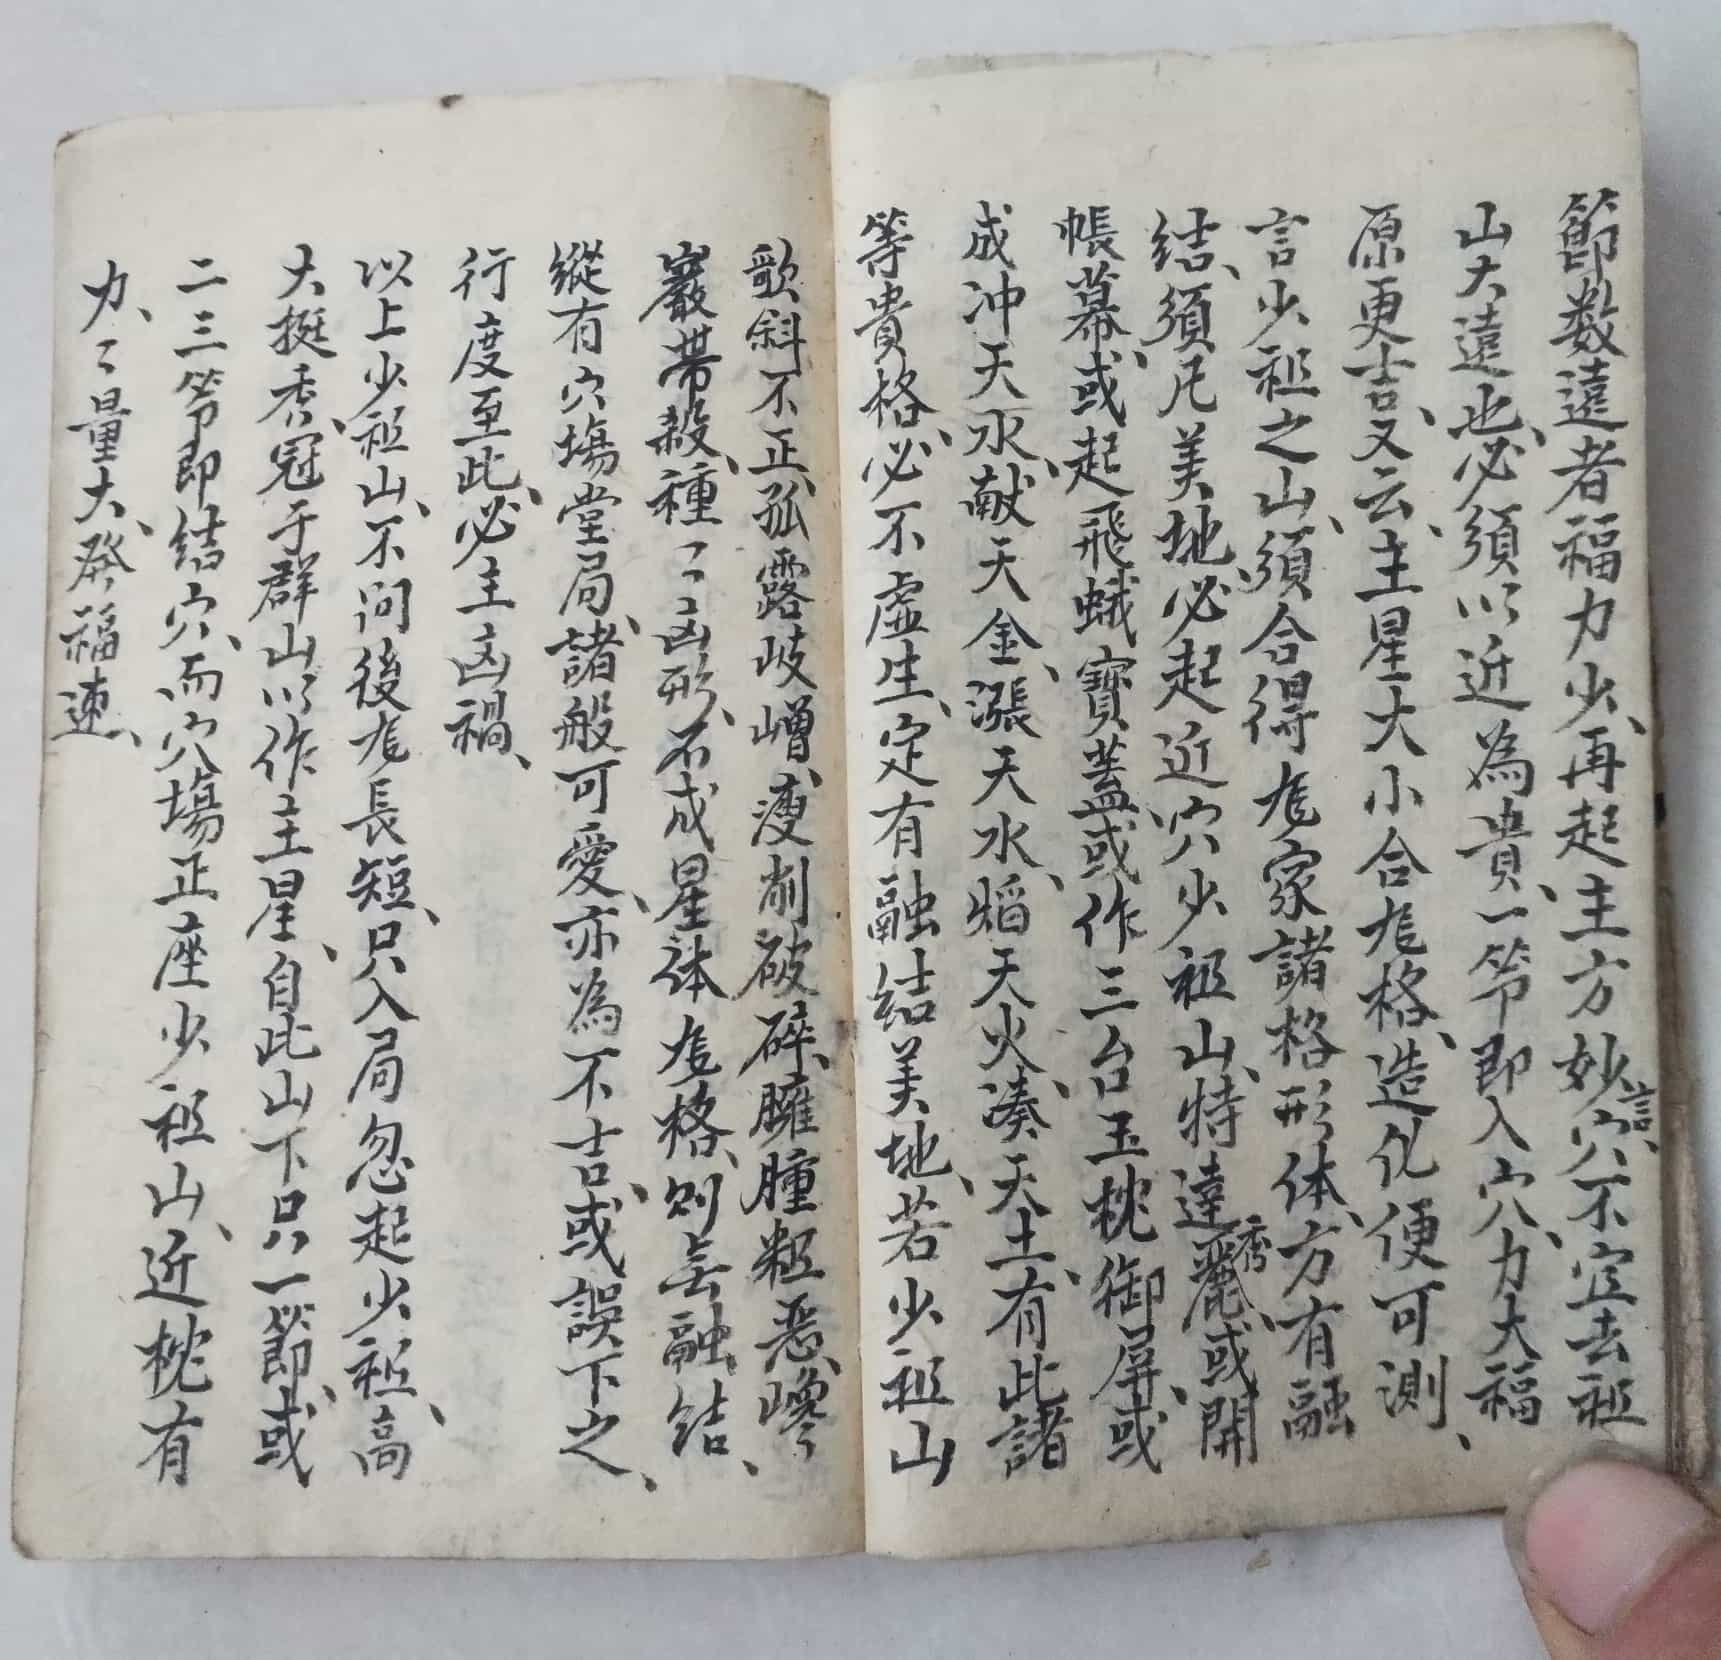 節数遠者福力少、再起主方妙言、穴不宜去祖
山大遠也、必須以近為貴、一節即入穴、力大福
原更吉、又云、主星大小合龙格、造化便可測、
言少祖之山、須合得龙家諸格形体、方有融
結、須凡美地、必起近穴少祖山、特達秀麗、或開
帳幕、或起飛蛾寶蓋、或作三台玉枕御屏、或
成冲天水、献天金、漲天水、焰天火、凑天土、有此諸
等貴格、必不虚生、定有融結美地、若少祖山
歌斜不正、孤露岐嶒、瘦削破碎、臃腫粗恶、巉
巖帶殺、種々凶形、不成星体龙格、则无融結、
縱有穴場堂局、諸般可愛、亦為不吉、或誤下之、
行度至此、必主凶禍、
以上少祖山、不问後龙長短、只入局忽起少祖、高
大挺秀、冠于群山、以作主星、自此山下只一節、或
二三節即結穴、而穴場正座少祖山、近枕有
力、々量大、發福速、